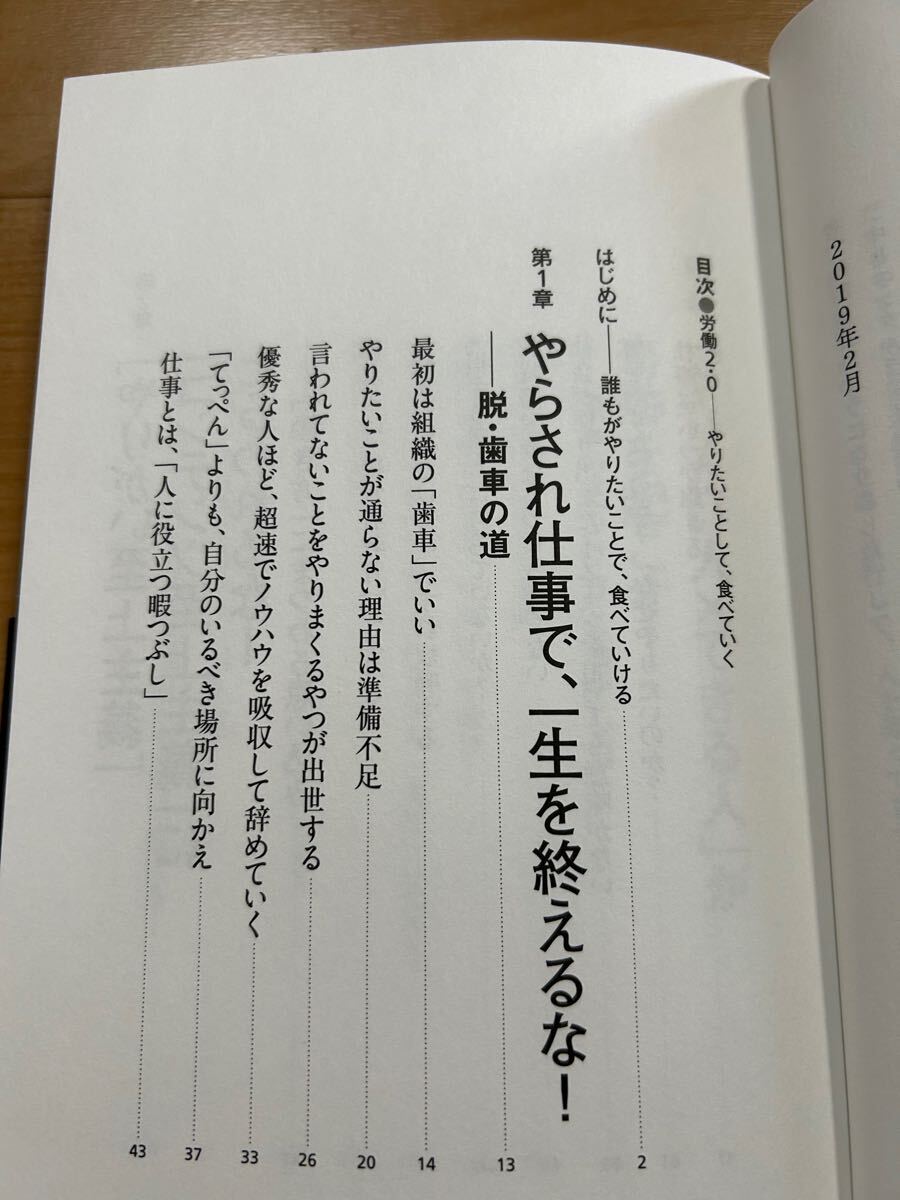 2019年2月
目次●労働2.0──やりたいことして、食べていく
はじめに──誰もがやりたいことで、食べていける 2
第1章 やらされ仕事で、一生を終えるな！
──脱・歯車の道 13
最初は組織の「歯車」でいい 14
やりたいことが通らない理由は準備不足 20
言われてないことをやりまくるやつが出世する 26
優秀な人ほど、超速でノウハウを吸収して辞めていく 33
「てっぺん」よりも、自分のいるべき場所に向かえ 37
仕事とは、「人に役立つ暇つぶし」 43